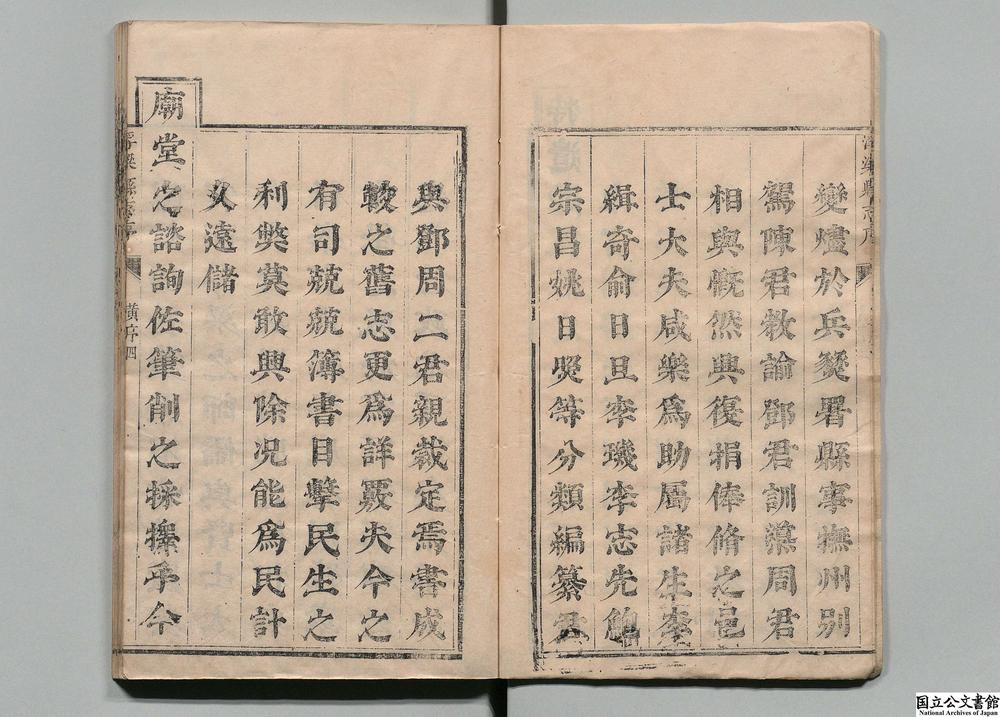 變燼於兵燹署縣事撫州別
駕陳君教諭鄧君訓䕫周君
相與慨然興復捐俸脩之邑
士大夫咸樂為助屬諸生李
緝奇俞日旦李璣李志先鮑
宗昌姚日煚等分類編纂君
與鄧周二君親裁定焉書成
較之舊志更爲詳覈夫今之
有司兢兢簿書目擊民生之
利獘莫敢興除況能爲民計
久遠儲
廟堂之諮詢佐筆削之採擇乎今
浮梁縣志序
黃序四
国立公文書館
National Archives of Japan